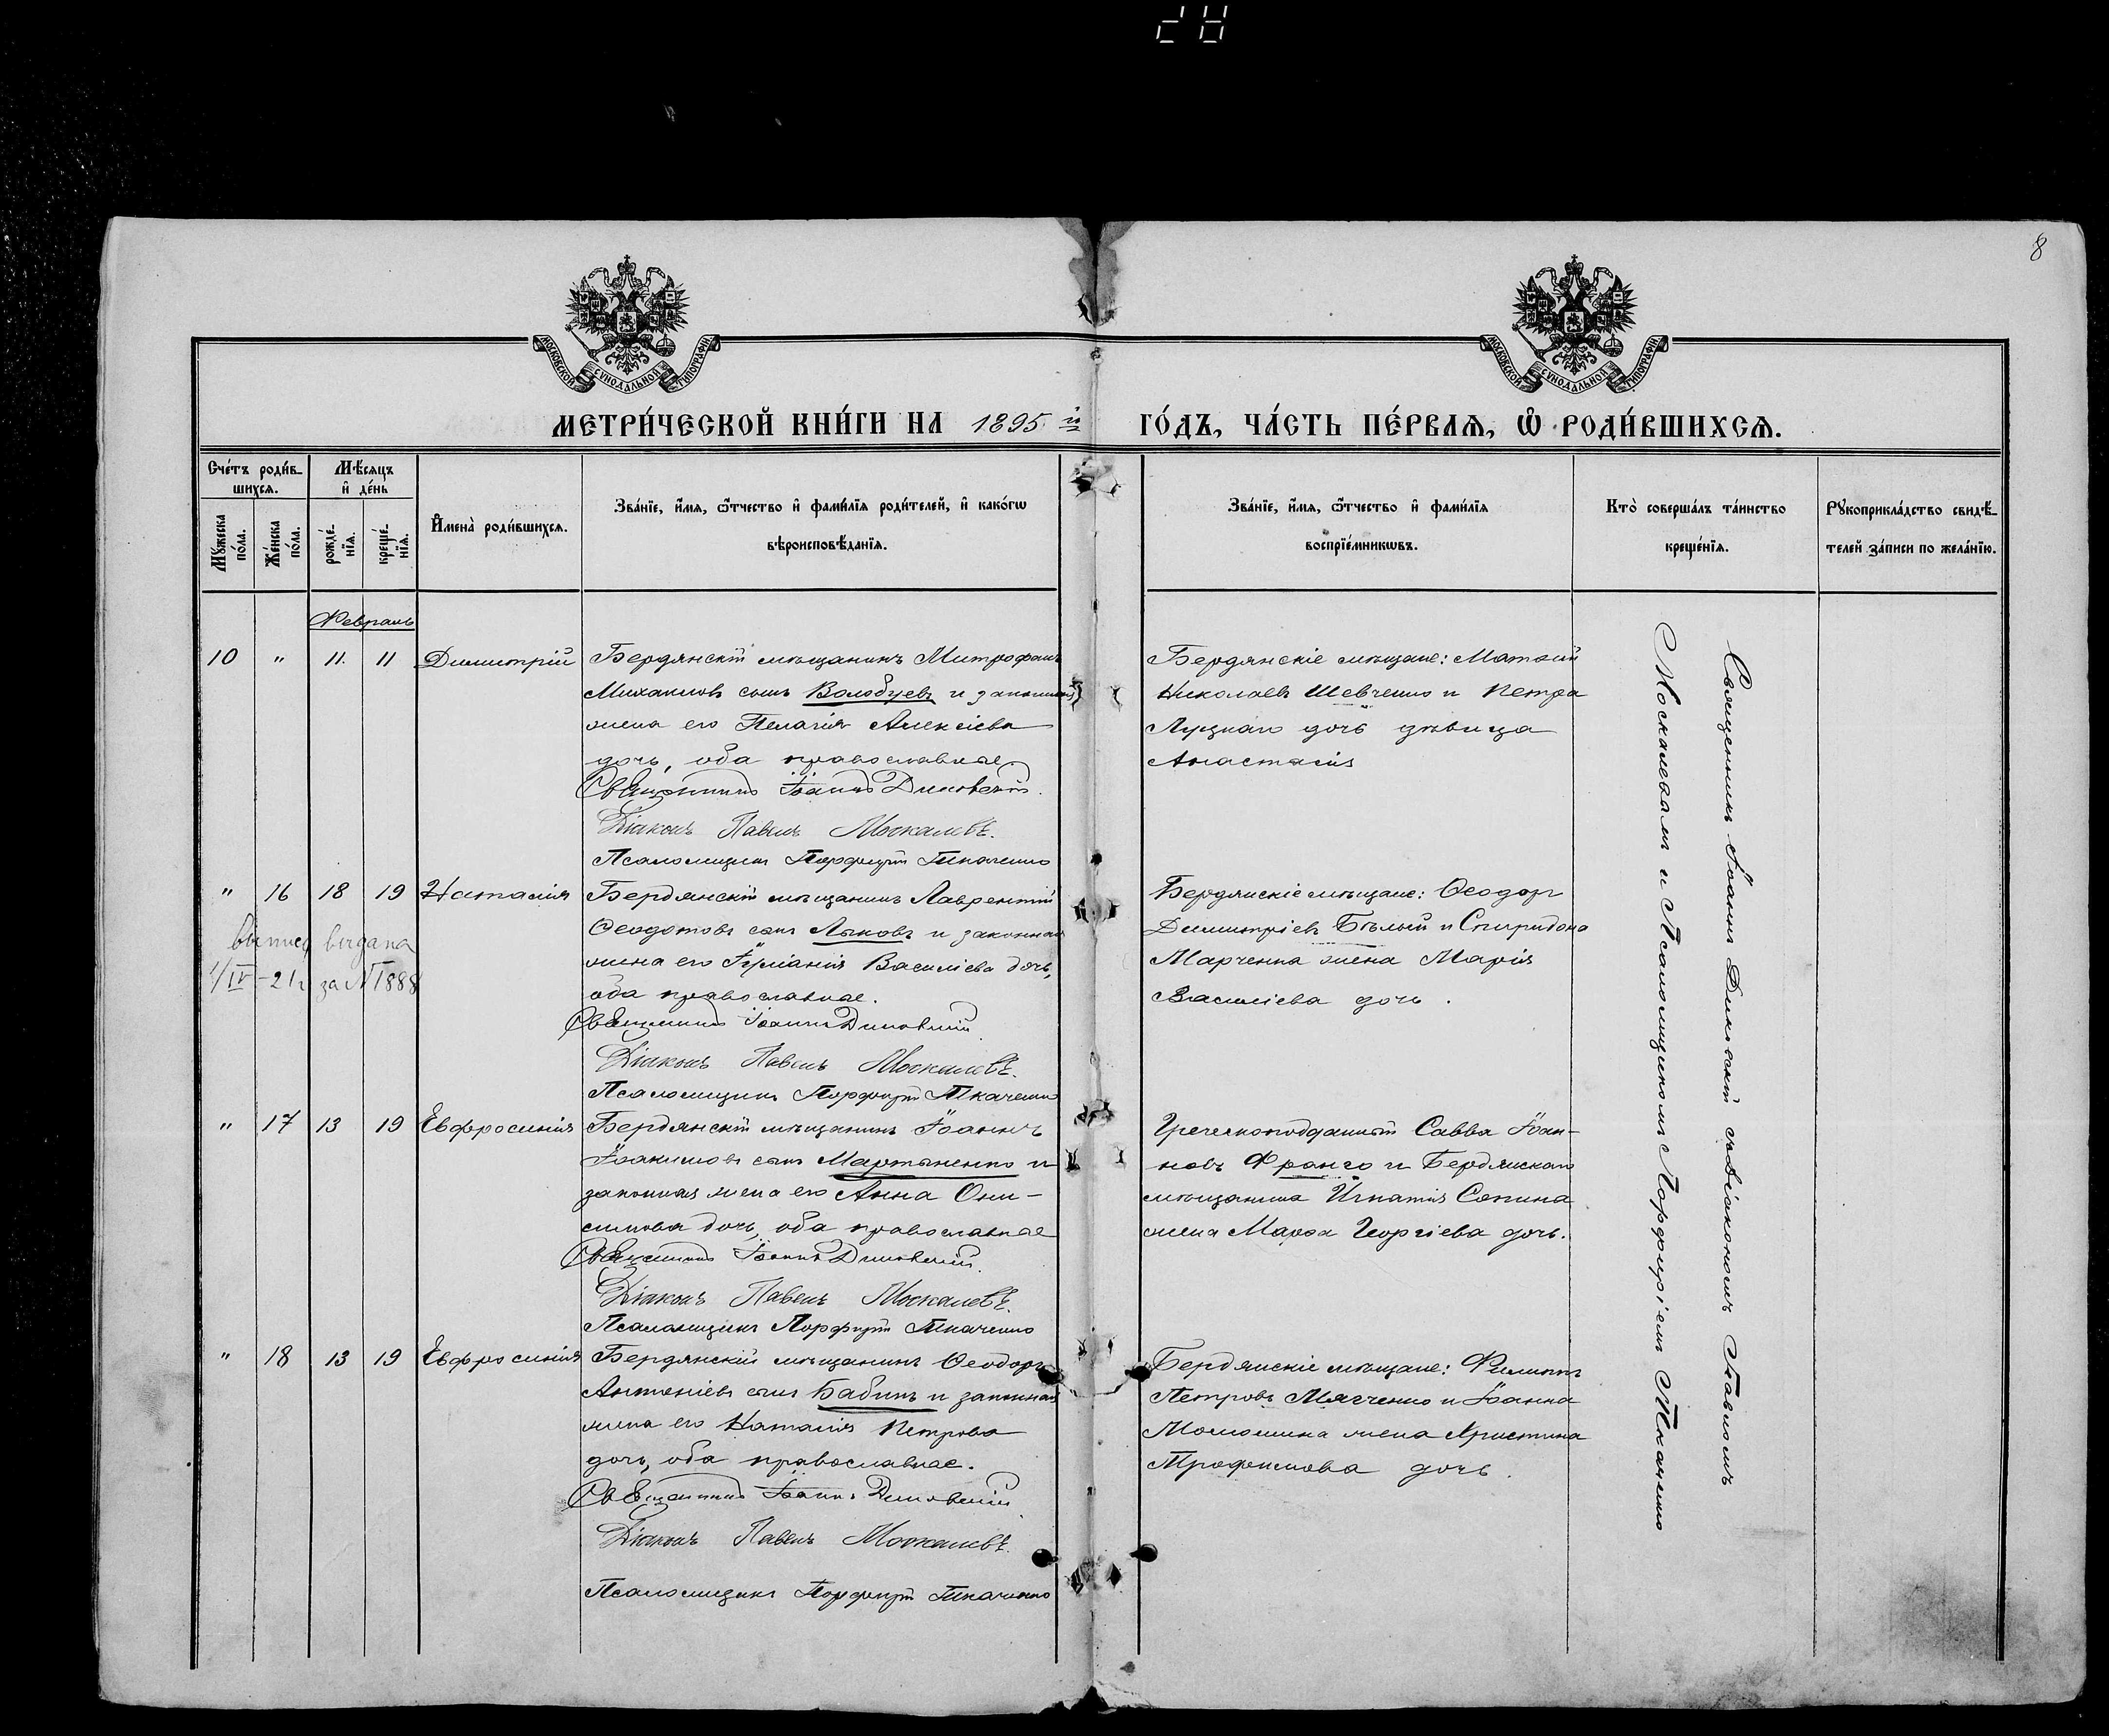 8
МОСКОВСКОЙ СУНОДАЛЬНОЙ ТИПОГРАФІИ
МОСКОВСКОЙ СУНОДАЛЬНОЙ ТИПОГРАФІИ
МЕТРИ́ЧЕСКОЙ КНИ́ГИ НА 1895 й ГО́ДЪ, ЧА́СТЬ ПЕ́РВАѦ, Ѡ҆ РОДИ́ВШИХСѦ.
Сче́тъ роди́в-
шихсѧ.
Мꙋ́жеска по́ла.
Же́нска по́ла.
Мѣ́сѧцъ
и҆ де́нь
рожде́-
нїѧ.
креще́-
нїѧ.
И҆мена̀ роди́вшихсѧ.
Зва́нїе, и҆́мѧ, ѿтчество и҆ фами́лїѧ роди́телей, и҆ како́гѡ
вѣроисповѣ́данїѧ.
Зва́нїе, и҆́мѧ, ѿтчество и҆ фами́лїѧ
воспрїе́мникѡвъ.
Кто̀ соверша́лъ та́инство
креще́нїѧ.
Рꙋкоприкла́дство свидѣ́-
телей за́писи по жела́нїю.
Февраль
10 " 11. 11 Димитрій
Бердянскій мѣщанинъ Митрофанъ
Михаиловъ сынъ Волобуевъ и законная
жена его Пелагія Алексіева
дочь, оба православные.
Священникъ Іоаннъ Диковскій.
Діаконъ Павелъ Москалевъ.
Псаломщикъ Порфирій Ткаченко
Бердянскіе мѣщане: Матѳій
Николаевъ Шевченко и Петра
Луцкаго дочь дѣвица
Анастасія
" 16 18 19 Наталія
выпись выдана
1/IV-21г за № 1888
Бердянскій мѣщанинъ Лаврентій
Ѳеодотовъ сынъ Лыковъ и законная
жена его Іуліанія Василіева дочь,
оба православные.
Священникъ Іоаннъ Диковскій
Діаконъ Павелъ Москалевъ.
Псаломщикъ Порфирій Ткаченко
Бердянскіе мѣщане: Ѳеодоръ
Димитріевъ Бѣлый и Спиридона
Марченка жена Марія
Василіева дочь.
" 17 13 19 Евфросинія
Бердянскій мѣщанинъ Іоаннъ
Іоакимовъ сынъ Мартыненко и
законная жена его Анна Они-
симова дочь, оба православные
Священникъ Іоаннъ Диковскій.
Діаконъ Павелъ Москалевъ.
Псаломщикъ Порфирій Ткаченко
Греческоподданный Савва Іоан-
новъ Франго и Бердянскаго
мѣщанина Игнатія Сопина
жена Марѳа Георгіева дочь.
" 18 13 19 Евфросинія
Бердянскій мѣщанинъ Ѳеодоръ
Антоніевъ сынъ Бабинъ и законная
жена его Наталія Петрова
дочь, оба православные.
Священникъ Іоаннъ Диковскій
Діаконъ Павелъ Москалевъ.
Псаломщикъ Порфирій Ткаченко
Бердянскіе мѣщане: Филиппъ
Петровъ Мягченко и Іоанна
жена Христина
Трофимова дочь.
Священникъ Іоаннъ Диковскій съ діакономъ Павломъ
Москалевымъ и Псаломщикомъ Порфиріемъ Ткаченко